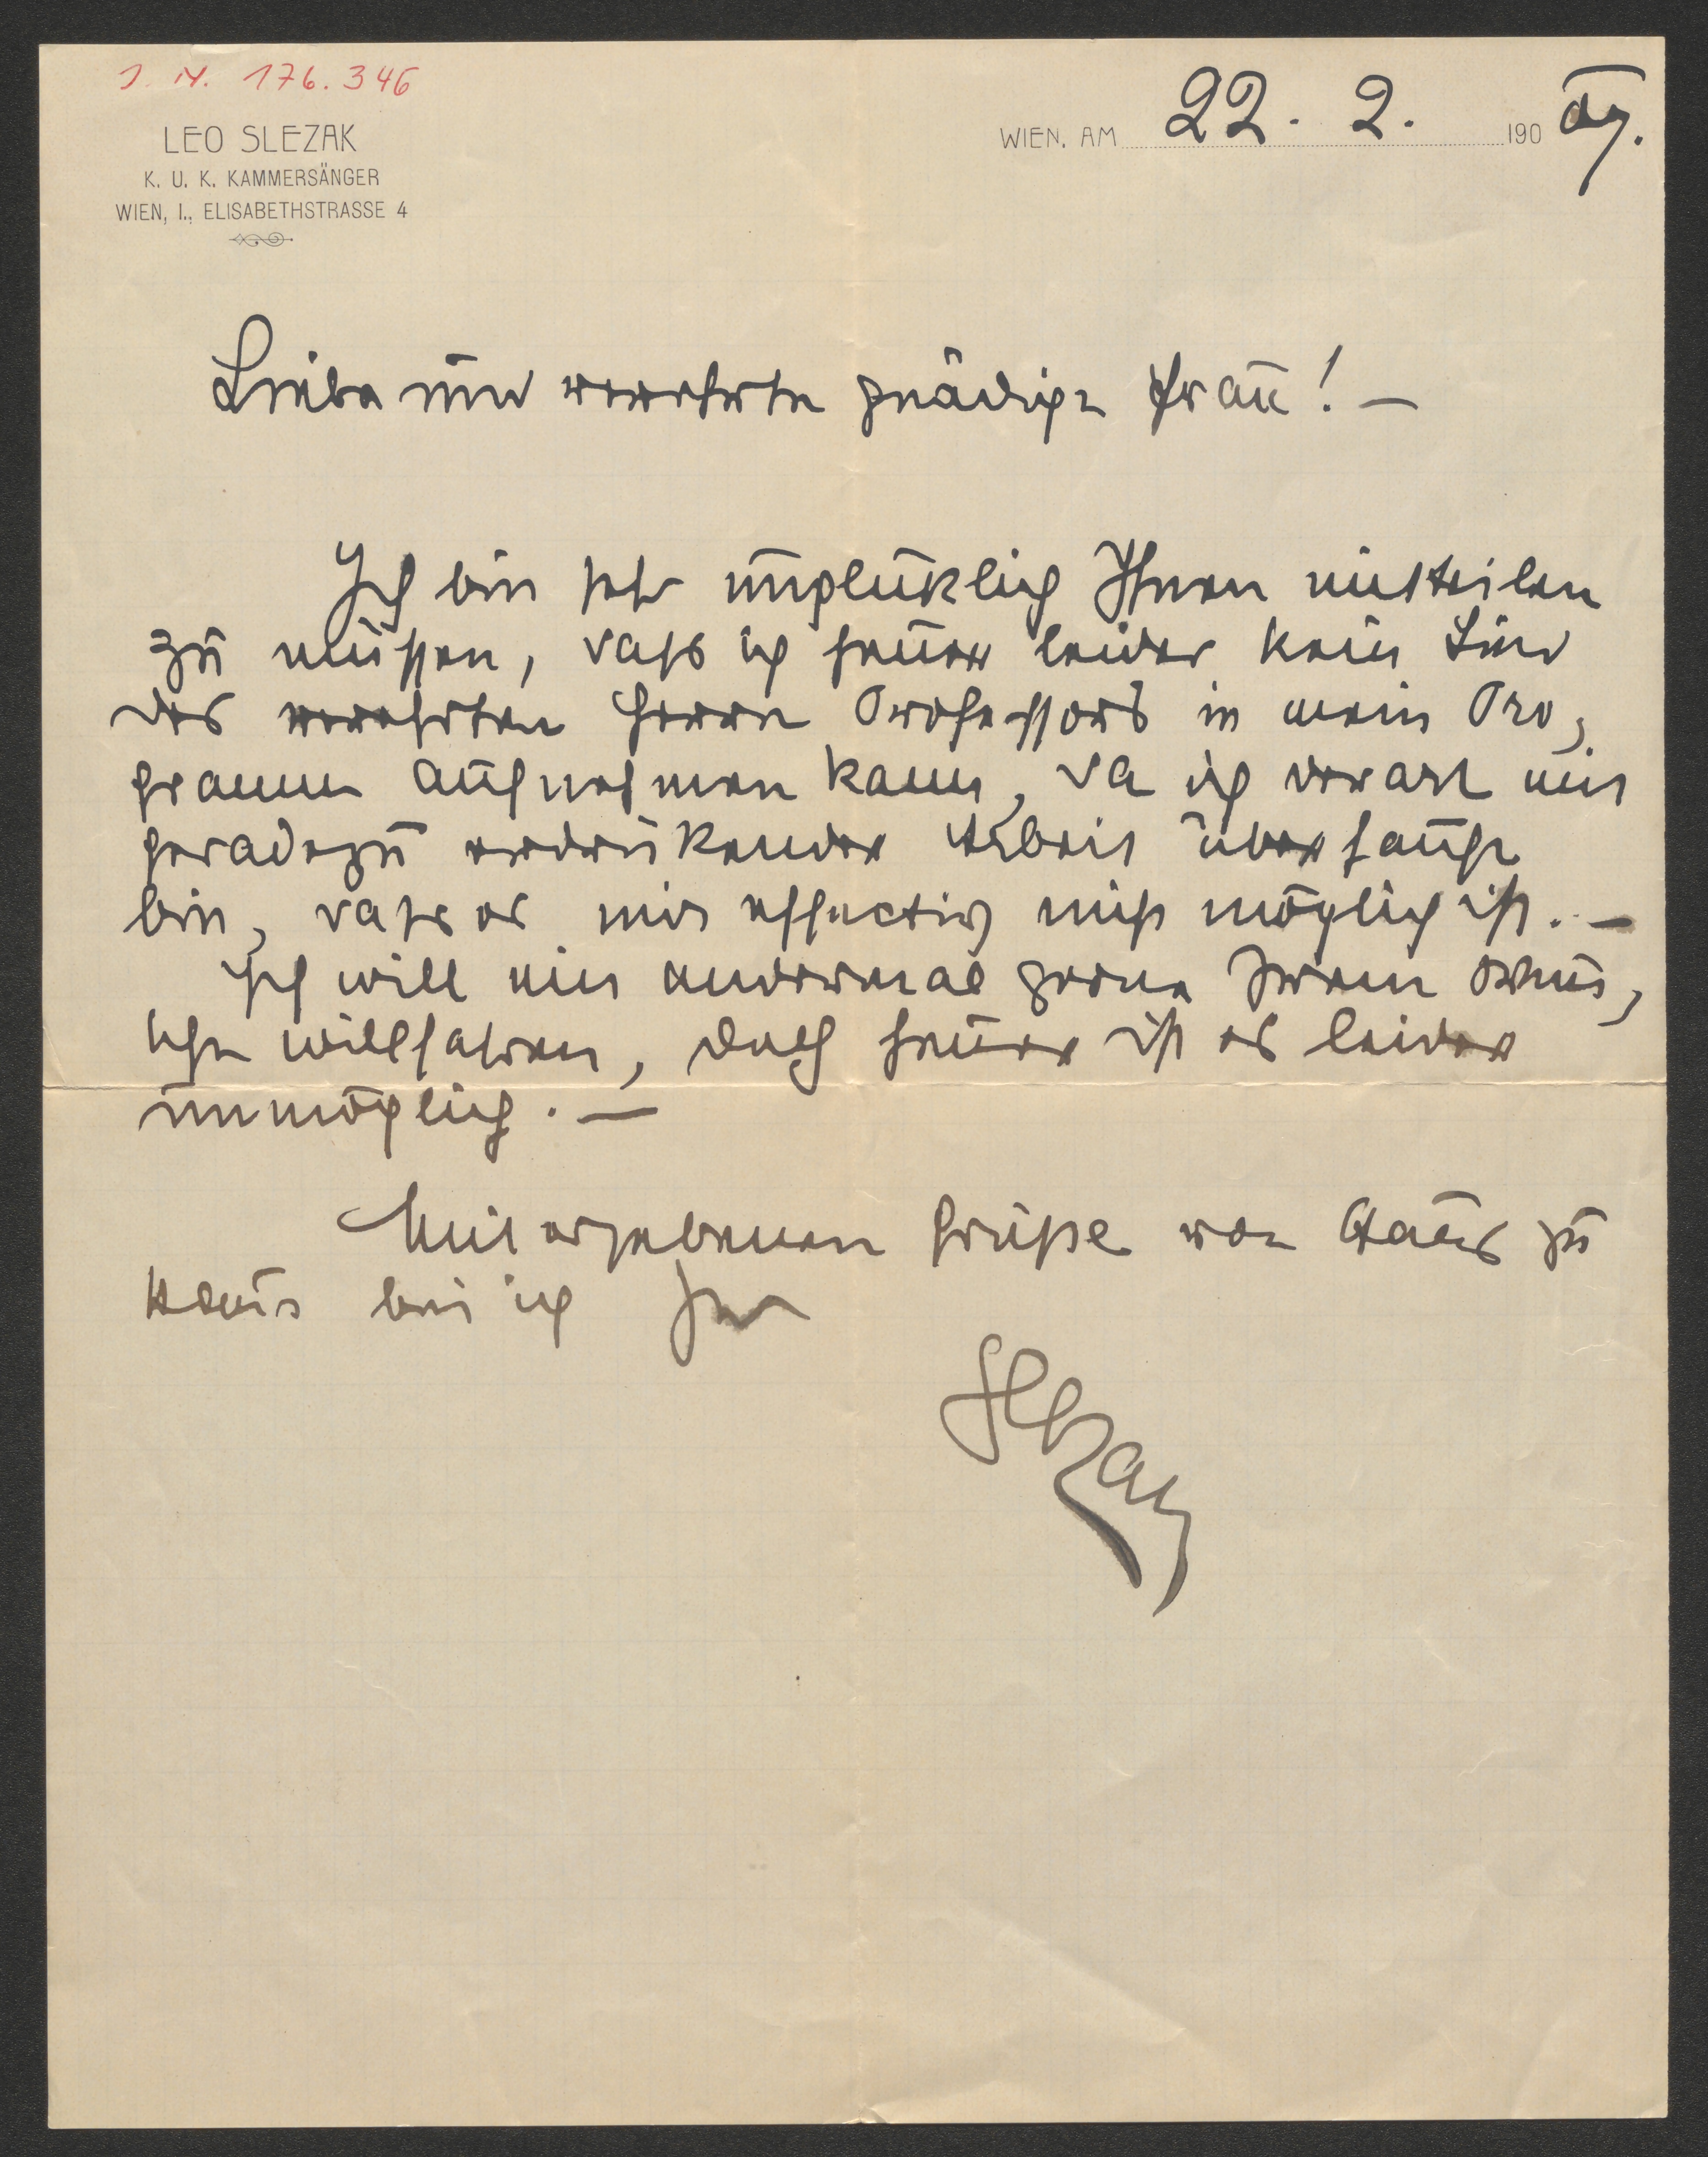 J. N. 176.346
LEO SLEZAK
K. U. K. KAMMERSÄNGER
WIEN, I., ELISABETHSTRASSE 4
WIEN, AM 22. 2. 190 09.
Liebe und verehrte gnädige Frau! —
Ich bin sehr unglüklich Ihnen mitteilen
zu müssen, dass ich heuer leider kein Lied
des verehrten Herrn Professors in mein Pro,
gramm aufnehmen kann, da ich derart mit
geradezu erdrükender Arbeit überhäuft
bin, dass es mir effectiv nicht möglich ist. —
Ich will ein andermal gerne Ihrem Wuns,
che willfahren, doch heuer ist es leider
unmöglich. —
Mit ergebenen Grüße von Haus zu
Haus bin ich Ihr
Slezak